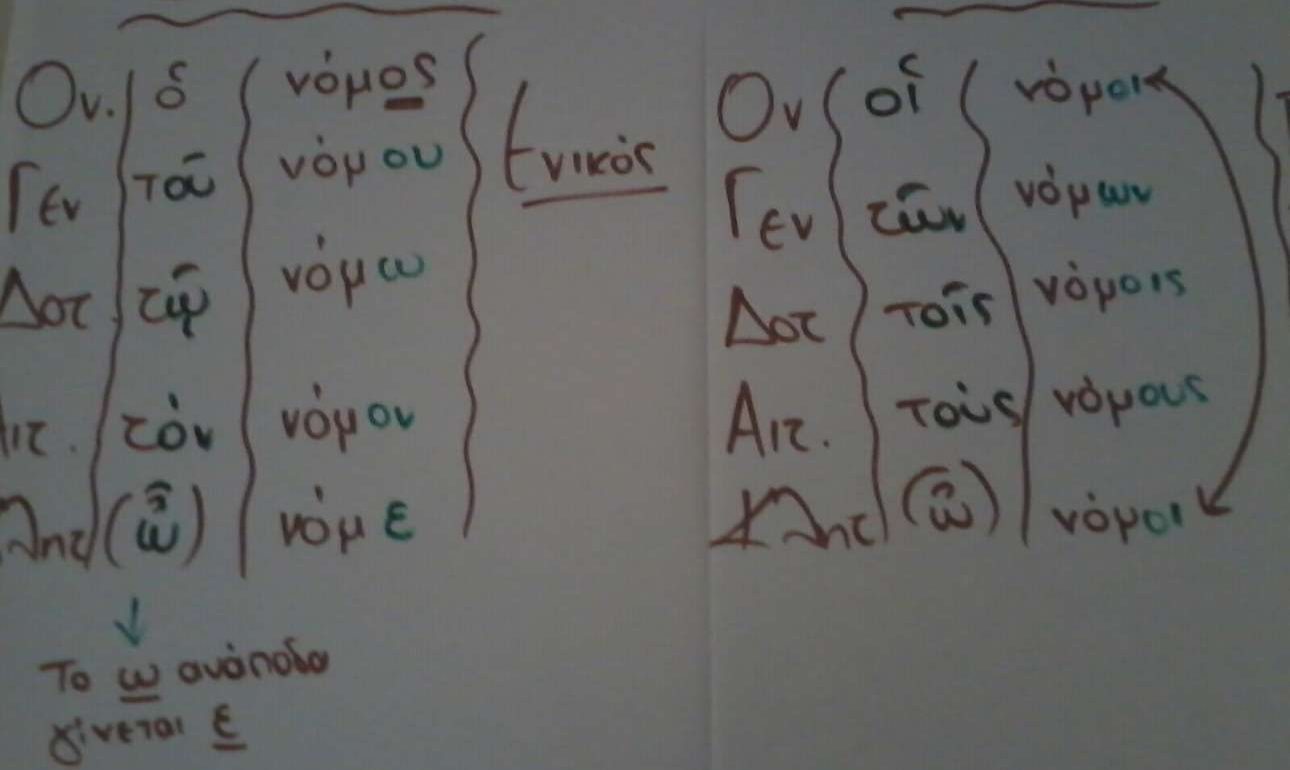 Ον. ὁ νόμος
Γεν τοῦ νόμου
Δοτ τῷ νόμω
Αιτ. τόν νόμον
Κλητ (ὦ) νόμε
Ενικός
↓
Το ω ανάποδα
γίνεται ε
Ον οἱ νόμοι
Γεν τῶν νόμων
Δοτ τοῖς νόμοις
Αιτ. τούς νόμους
Κλητ (ὦ) νόμοι